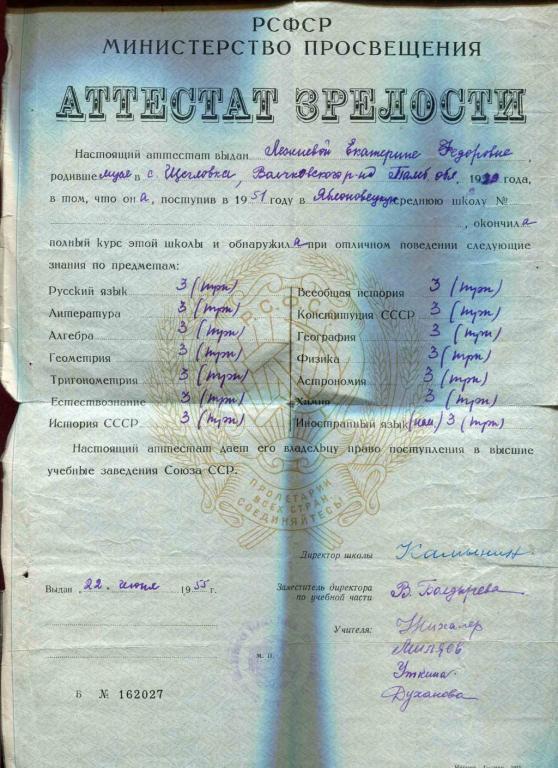 РСФСР
МИНИСТЕРСТВО ПРОСВЕЩЕНИЯ
АТТЕСТАТ ЗРЕЛОСТИ
Настоящий аттестат выдан Екатерине Федоровне,
родившейся в с. Щегловка, обл, 19 года,
в том, что она, поступив в 1951 году в среднюю школу №
, окончила
полный курс этой школы и обнаружила при отличном поведении следующие
знания по предметам:
Русский язык 3 (три) Всеобщая история 3 (три)
Литература 3 (три) Конституция СССР 3 (три)
Алгебра 3 (три) География 3 (три)
Геометрия 3 (три) Физика 3 (три)
Тригонометрия 3 (три) Астрономия 3 (три)
Естествознание 3 (три) Химия 3 (три)
История СССР 3 (три) Иностранный язык (нем) 3 (три)
Настоящий аттестат дает его владельцу право поступления в высшие
учебные заведения Союза ССР.
РСФСР
ПРОЛЕТАРИИ
ВСЕХ СТРАН
СОЕДИНЯЙТЕСЬ!
Директор школы
Выдан „22“ июня 1955 г.
Заместитель директора
по учебной части В. Болдырева
Учителя:
Уткина
Духанова
м. п.
Б № 162027